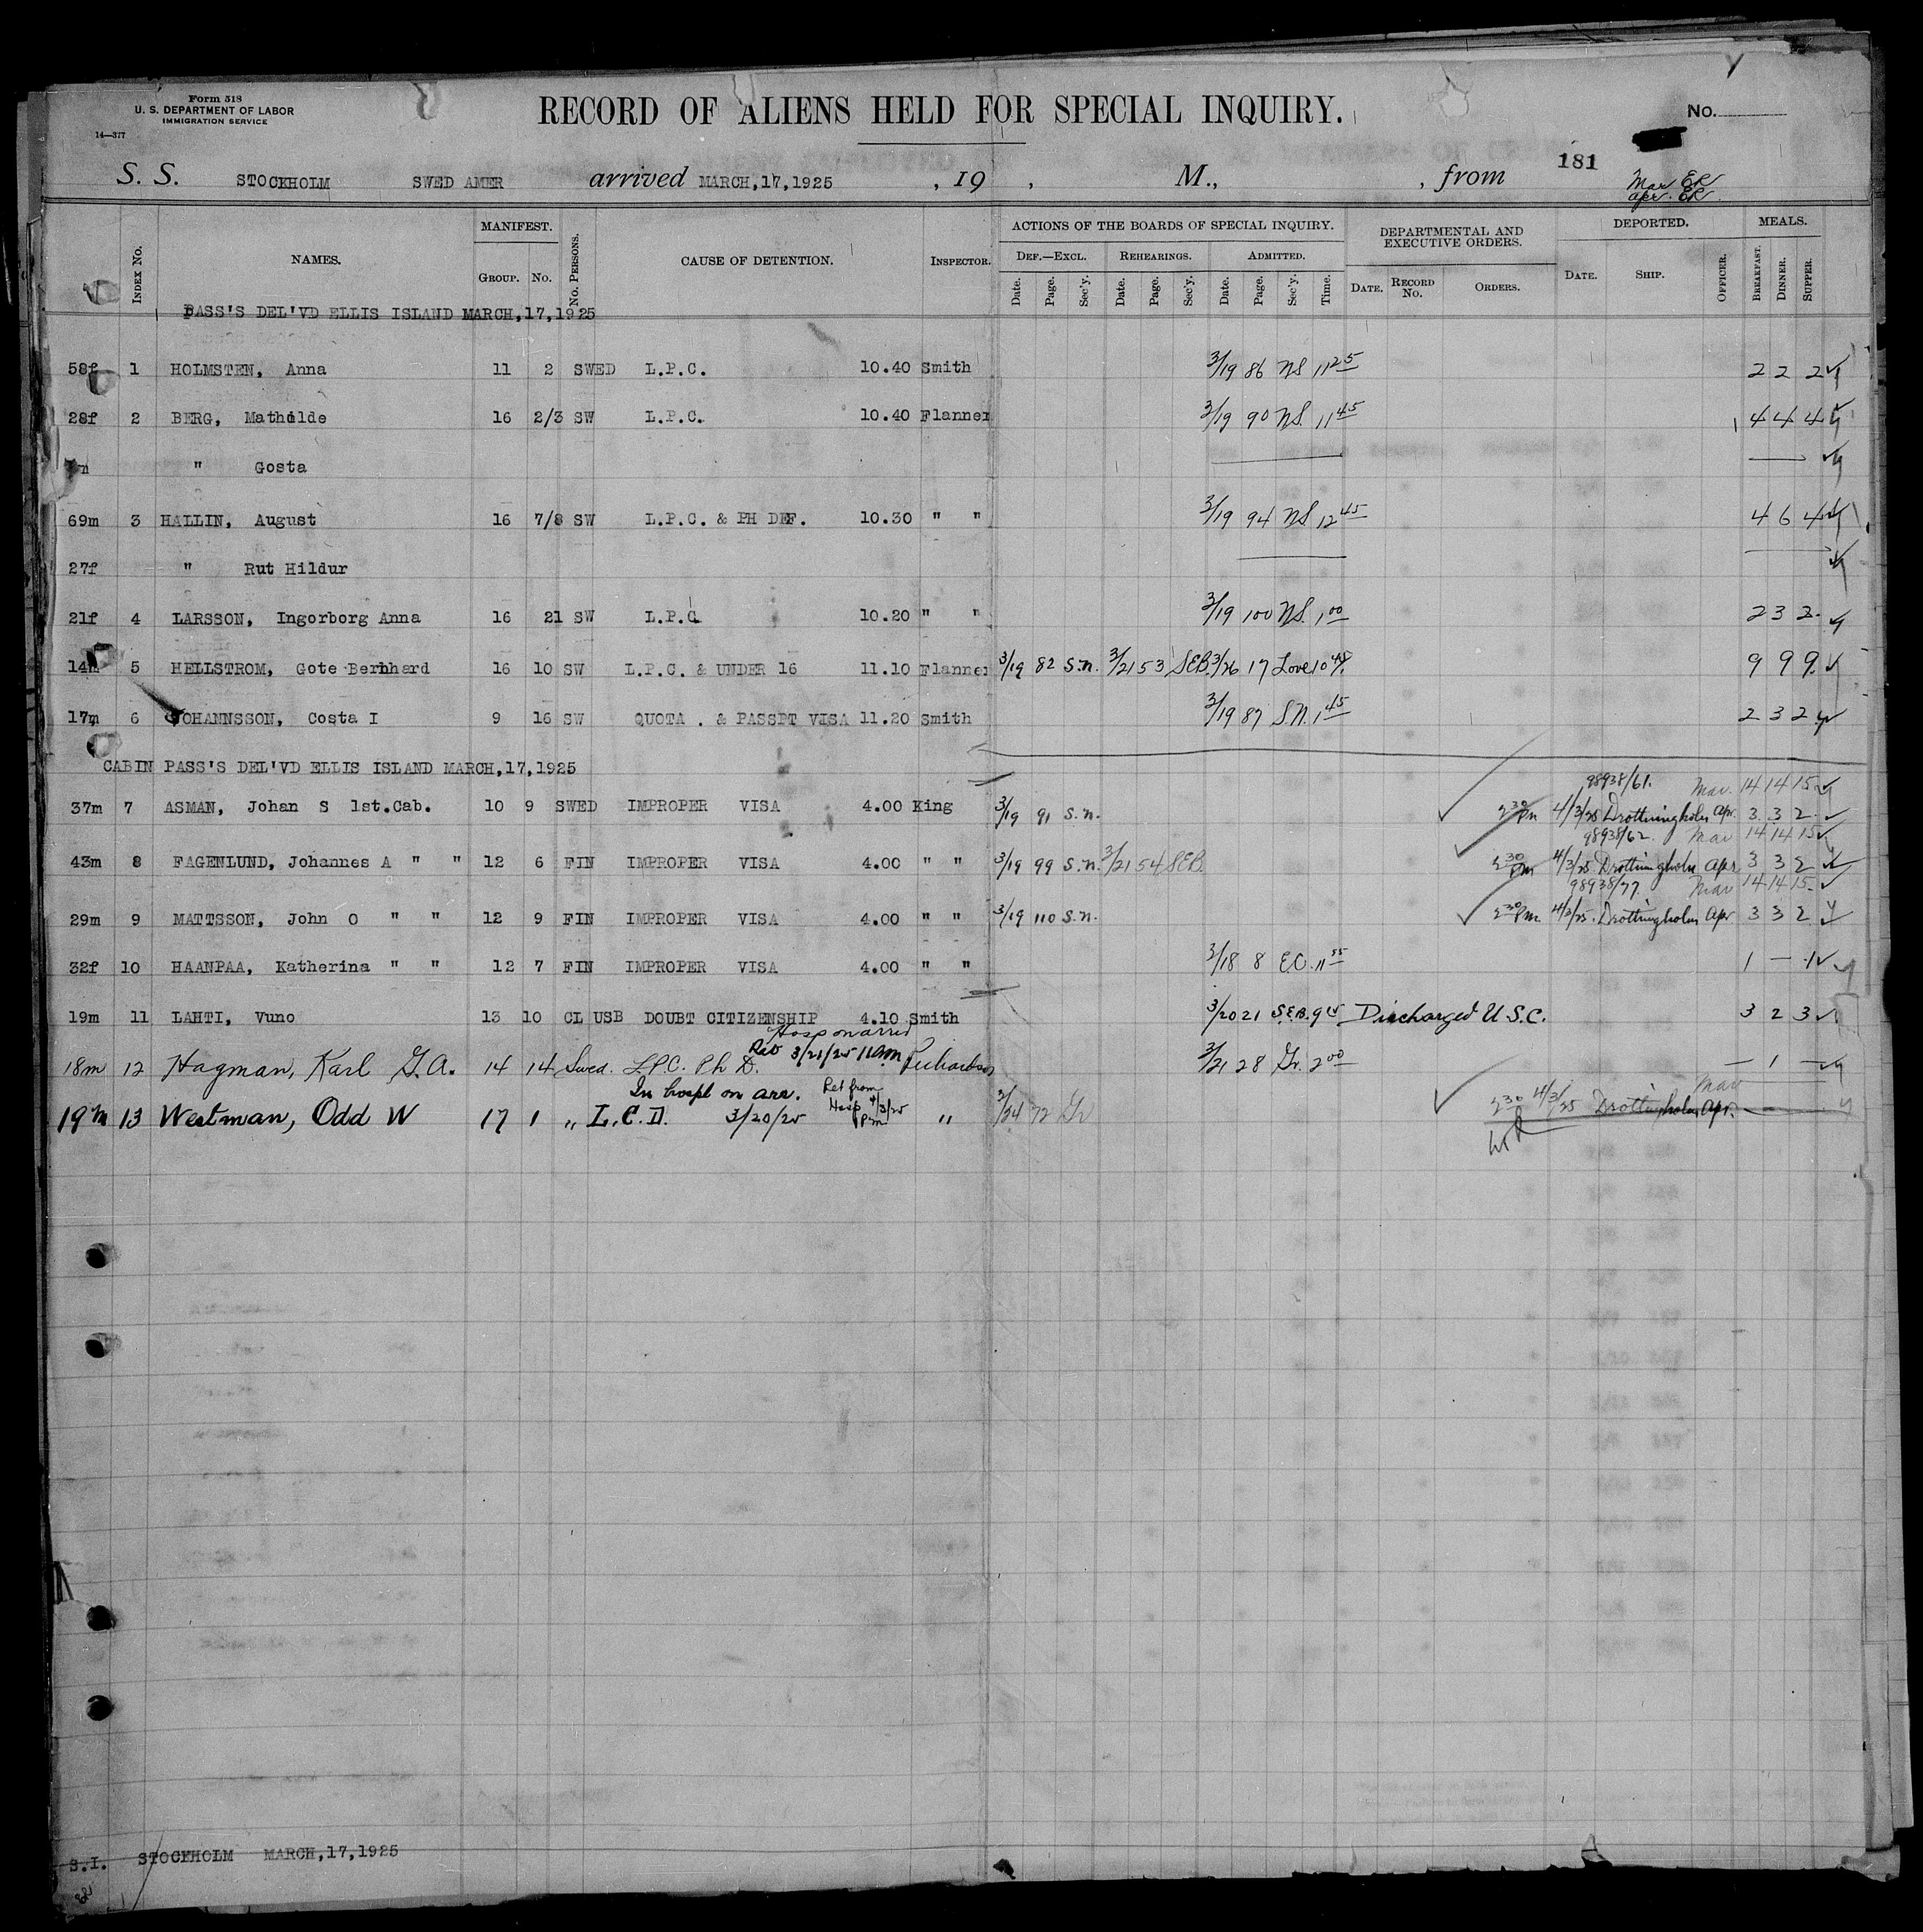 Form 518
U. S. DEPARTMENT OF LABOR
IMMIGRATION SERVICE
14—377
RECORD OF ALIENS HELD FOR SPECIAL INQUIRY.
No.
181
S. S. STOCKHOLM SWED AMER arrived MARCH,17,1925 , 19 , M., , from
Mar ER
Apr. ER
INDEX No. NAMES. MANIFEST. GROUP. No. No. PERSONS. CAUSE OF DETENTION. INSPECTOR. ACTIONS OF THE BOARDS OF SPECIAL INQUIRY. DEF.—EXCL. Date. Page. Sec'y. REHEARINGS. Date. Page. Sec'y. ADMITTED. Date. Page. Sec'y. Time. DEPARTMENTAL AND EXECUTIVE ORDERS. DATE. RECORD No. ORDERS. DEPORTED. DATE. SHIP. OFFICER. MEALS. BREAKFAST. DINNER. SUPPER.
PASS'S DEL'VD ELLIS ISLAND MARCH,17,1925
58f 1 HOLMSTEN, Anna 11 2 SWED L.P.C. 10.40 Smith 3/19 86 NS 11 25 2 2 2
28f 2 BERG, Mathilde 16 2/3 SW L.P.C. 10.40 Flanner 3/19 90 NS. 11 45 4 4 4
" Gosta
69m 3 HALLIN, August 16 7/8 SW L.P.C. & PH DEF. 10.30 " " 3/19 94 NS 12 45 4 6 4
27f " Rut Hildur
21f 4 LARSSON, Ingorborg Anna 16 21 SW L.P.C. 10.20 " " 3/19 100 NS. 1 00 2 3 2
14m 5 HELLSTROM, Gote Bernhard 16 10 SW L.P.C. & UNDER 16 11.10 Flanner 3/19 82 S.N. 3/21 53 SEB. 3/26 17 Love 10 9 9 9
17m 6 JOHANNSSON, Costa I 9 16 SW QUOTA . & PASSPT VISA 11.20 Smith 3/19 87 S.N. 1 45 2 3 2
CABIN PASS'S DEL'VD ELLIS ISLAND MARCH,17,1925
98938/61. Mar. 14 14 15
37m 7 ASMAN, Johan S 1st.Cab. 10 9 SWED IMPROPER VISA 4.00 King 3/19 91 S.N. 2 30 Pm 4/3/25 Drottningholm Apr. 3 3 2
98938/62. Mar 14 14 15
43m 8 FAGENLUND, Johannes A " " 12 6 FIN IMPROPER VISA 4.00 " " 3/19 99 S.N. 3/21 54 SEB. 2 30 Pm 4/3/25 Drottningholm Apr 3 3 2
98938/77. Mar 14 14 15
29m 9 MATTSSON, John O " " 12 9 FIN IMPROPER VISA 4.00 " " 3/19 110 S.N. 2 30 Pm 4/3/25. Drottningholm Apr 3 3 2
32f 10 HAANPAA, Katherina " " 12 7 FIN IMPROPER VISA 4.00 " " 3/18 8 E.C. 11 55 1 — 1
19m 11 LAHTI, Vuno 13 10 CL USB DOUBT CITIZENSHIP 4.10 Smith 3/20 21 S.E.B. 9 Discharged U.S.C. 3 2 3
Hosp on arred
18m 12 Hagman, Karl G.A. 14 14 Swed. L.P.C. Ph D. Ret 3/21/25 11am Richardson 3/21 28 Gr. 2 00 — 1 —
In hospl on arr. Ret from Hosp 4/3/25 Pm Mar
19m 13 Westman, Odd W 17 1 " L.C.D. 3/20/25 " 3/24 72 Gr 2 30 4/3/25 Drottningholm Apr.
S.I. STOCKHOLM MARCH,17,1925